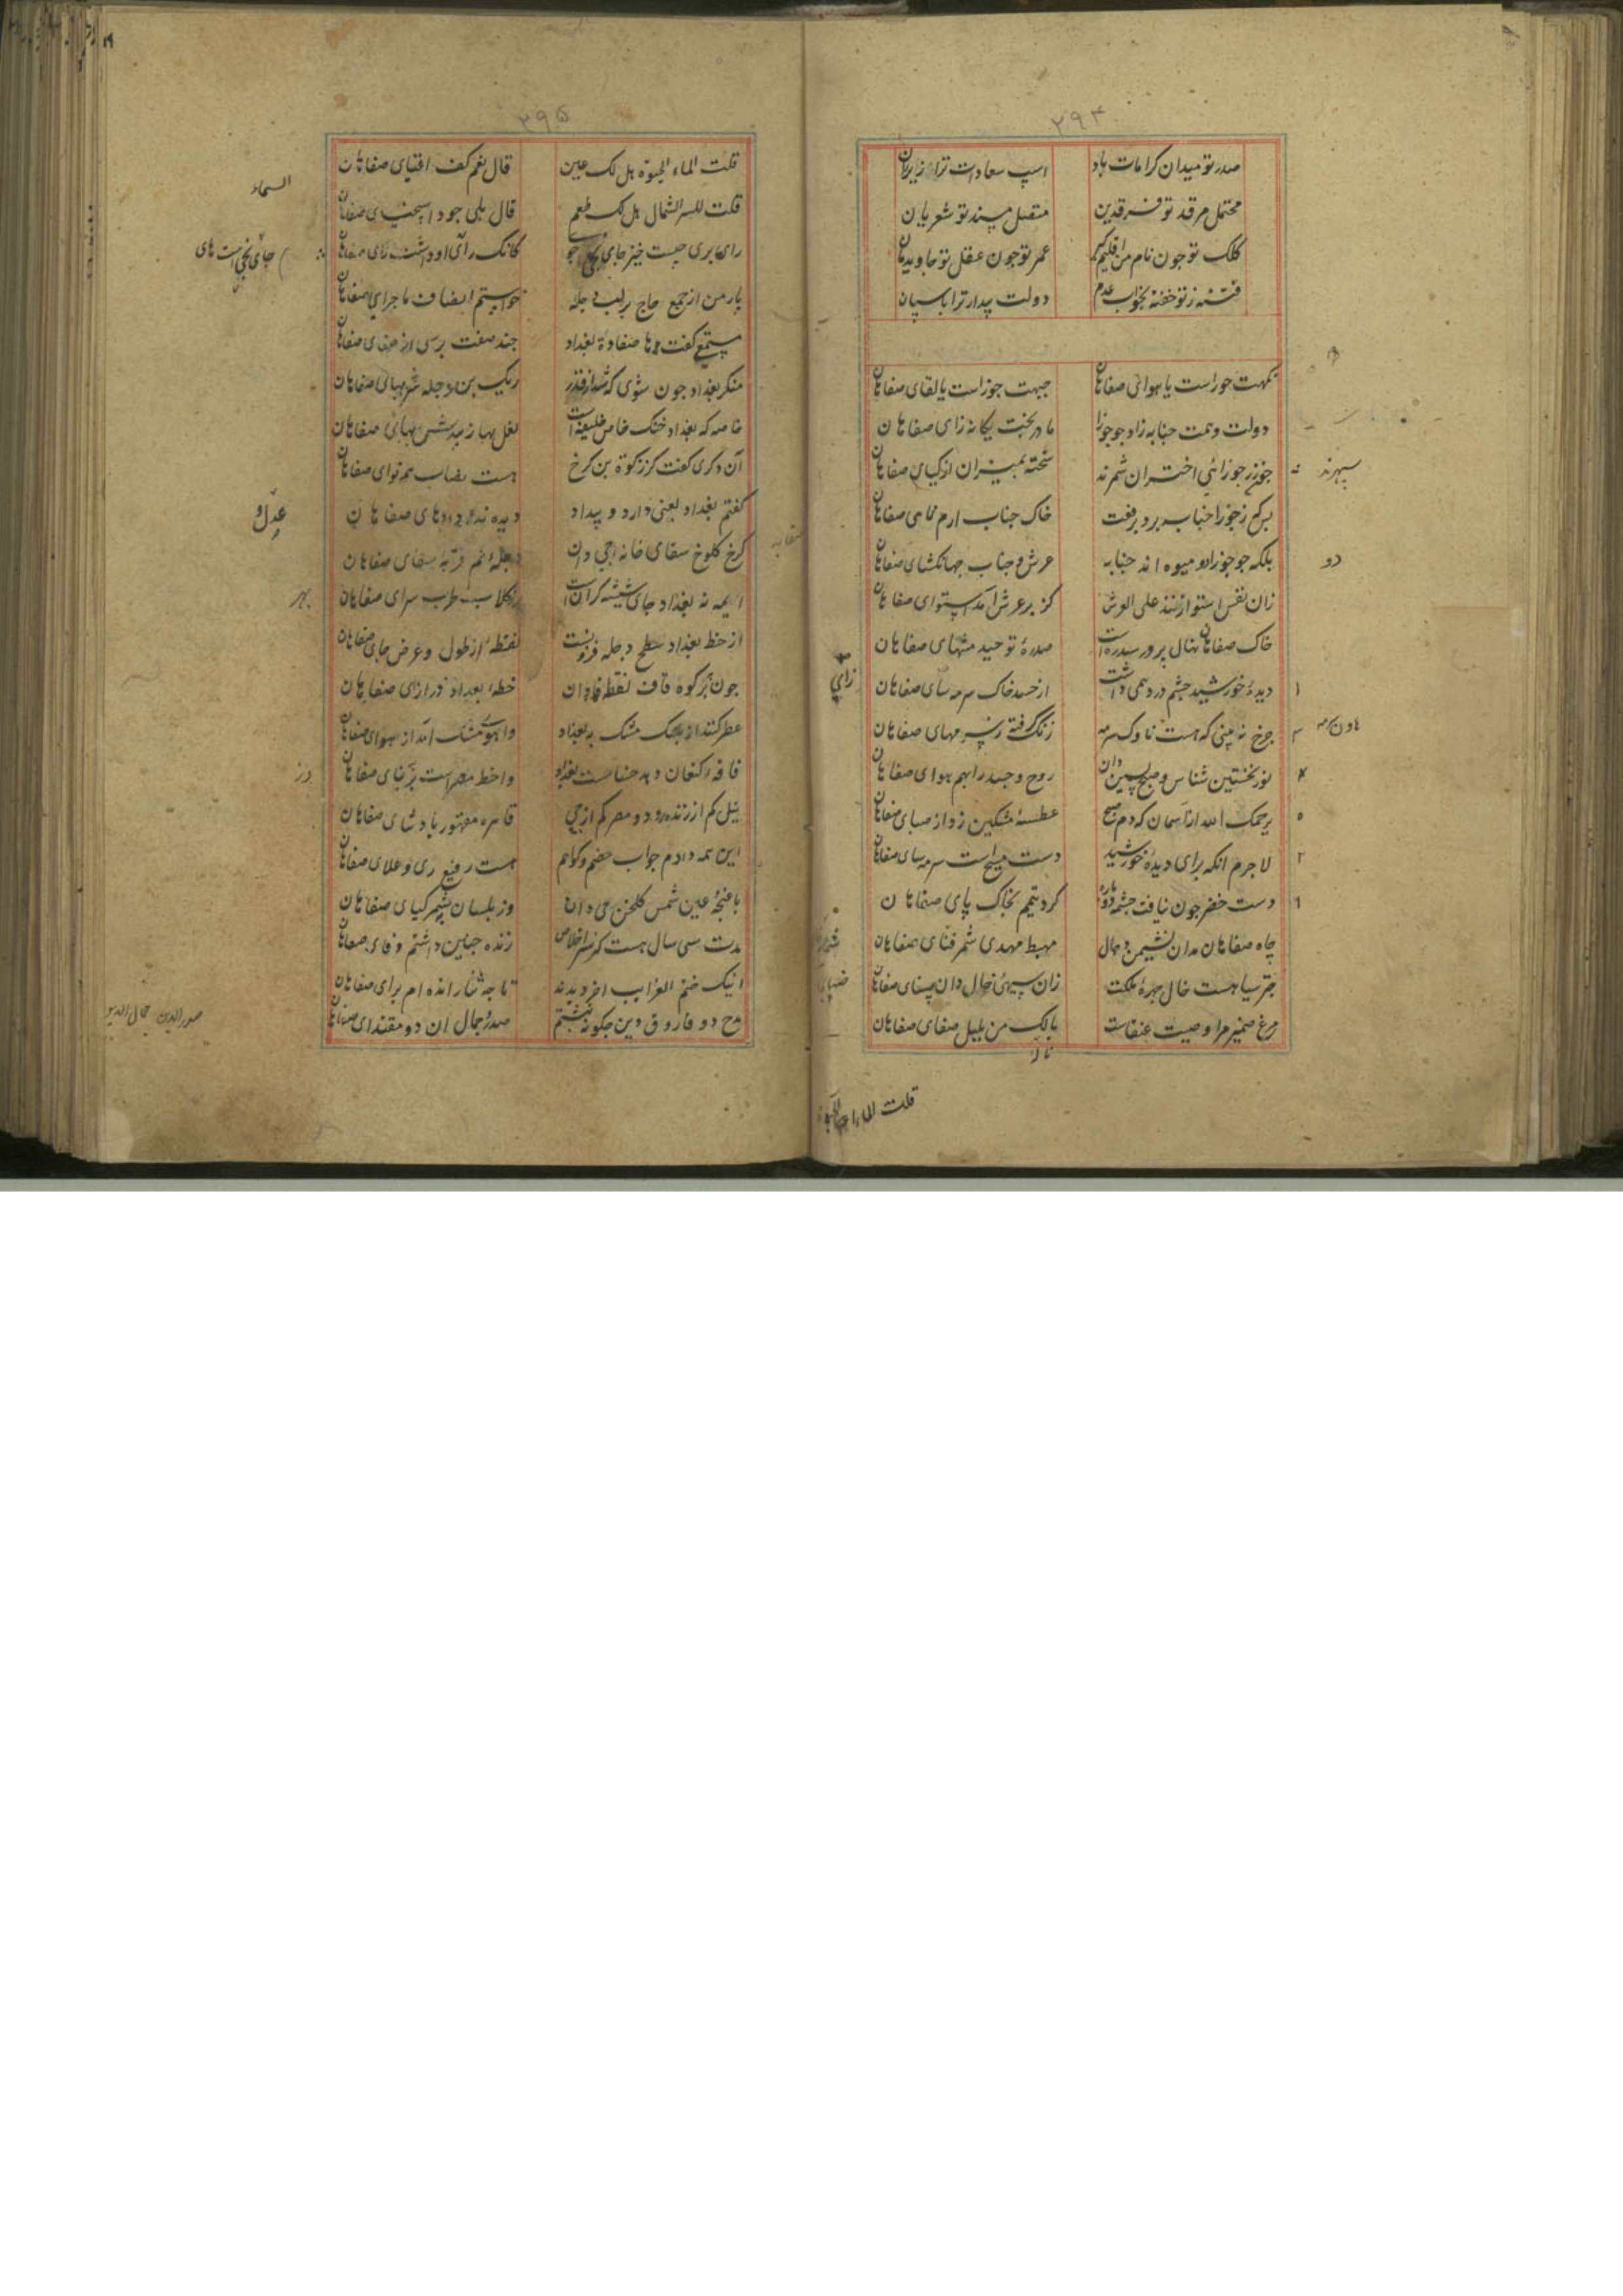 ۲۹۴
صدر تو میدان کرامات باد اسب سعادات ترا زیر ران
محتمل مرقد تو فرقدین متقبل مسند تو شعریان
کلک تو جون نام من اقلیم گیر عمر تو جون عقل تو جاویدان
فتنه ز تو خفته بخواب عدم دولت بیدار ترا پاسبان
نکهت حوراست یا هوای صفاهان جبهت جوزاست یا لقای صفاهان
دولت و ملت جنابه زاد جو جوزا مادر بخت یکانه زای صفاهان
جون زر جوزائی اختران شمرند سخته بمیزان ازکیای صفاهان
خاک جناب ارم نمای صفاهان
بلکه جو جوزا دو میوه اند جنابه عرش و جناب جهانکشای صفاهان
زان نفس استوا زنند علی العرش کز بر عرش آمد استوای صفاهان
خاک صفاهان نهال پرور سدره است سدره توحید منتهای صفاهان
دیده خورشید جشم درد همی داشت از حسد خاک سرمه سای صفاهان
جرخ نه بینی که هست هاون سرمه رنک کرفته ز سرمهای صفاهان
نور نخستین شناس و صبح پسین دان روح و جسد را بهم هوای صفاهان
یرحمک الله زد آسمان که دم صبح عطسه مشکین زد از صبای صفاهان
لاجرم انکه برای دیده خورشید دست مسیح است سرمه سای صفاهان
دست خضر جون نیافت جشمه دوباره کرد تیمم بخاک پای صفاهان
جاه صفاهان مدان نشیمن دجال مهبط مهدی شمر فنای صفاهان
جتر سیاهست خال جهره ملکت زان سیهی خال دان ضیای صفاهان
مرغ ضمیر مرا وصیت عنقاست بانک من بلبل صفای صفاهان
قلت الماء الحیوة
سپهرند
دو
هاون سرمه
زای
۲۹۵
قلت لماء الحیوة هل لک عین قال نعم کف اغنیای صفاهان
قلت لنسر الشمال هل لک طعم قال بلی جود اسخیای صفاهان
رای بری چیست خیز جای بجی جوی کانک ری او داشت داشت رای صفاهان
پار من از جمع حاج بر لب دجله خواستم انصاف ماجرای صفاهان
مستمعی کفت ها صفاوة بغداد جند صفت پرسی از صفای صفاهان
منکر بغداد جون شوی که ز قدر ریک بن دجله شد بهای صفاهان
خاصه که بغداد خنک خاص خلیفه است نعل بها زیبدش بهای صفاهان
آن دکری کفت کز زکوة بن کرخ هست نصاب همه نوای صفاهان
کفتم بغداد بغی دارد و بیداد دیده نه ای داد های صفاهان
کرخ کلوخ سقای خانه جی دان دجله نم قربه سقای صفاهان
ایمه نه بغداد جای شیشه کران است بهر کلاب طرب سرای صفاهان
از خط بغداد و سطح دجله فزونست نقطه از طول و عرض جای صفاهان
جون بر کوه قاف نقطه فا دان خطه بغداد در ازای صفاهان
عطر کنند از پلنک مشک به بغداد و آهوی مشک آمد از هوای صفاهان
فاقه کنعان دهد خساست بغداد
نیل کم از زنده رود و مصر کم از جی قاهره مقهور پادشای صفاهان
این همه دادم جواب خصم و کواهم هست رفیع ری و علای صفاهان
با غنجه عین شمس کلخن جی دان وز بلسان به شمر کیای صفاهان
مدت سی سال هست کز سر اخلاص زنده جنین داشتم وفای صفاهان
اینک ختم الغرایب آخر دیدند تا چه ثنا رانده ام برای صفاهان
مدح دو فاروق دین جکونه نبشتم صدر و جمال ان دو مقتدای صفاهان
السماء
جای بجی
عدل و
بهر
در
صدر الدین جمال الدین